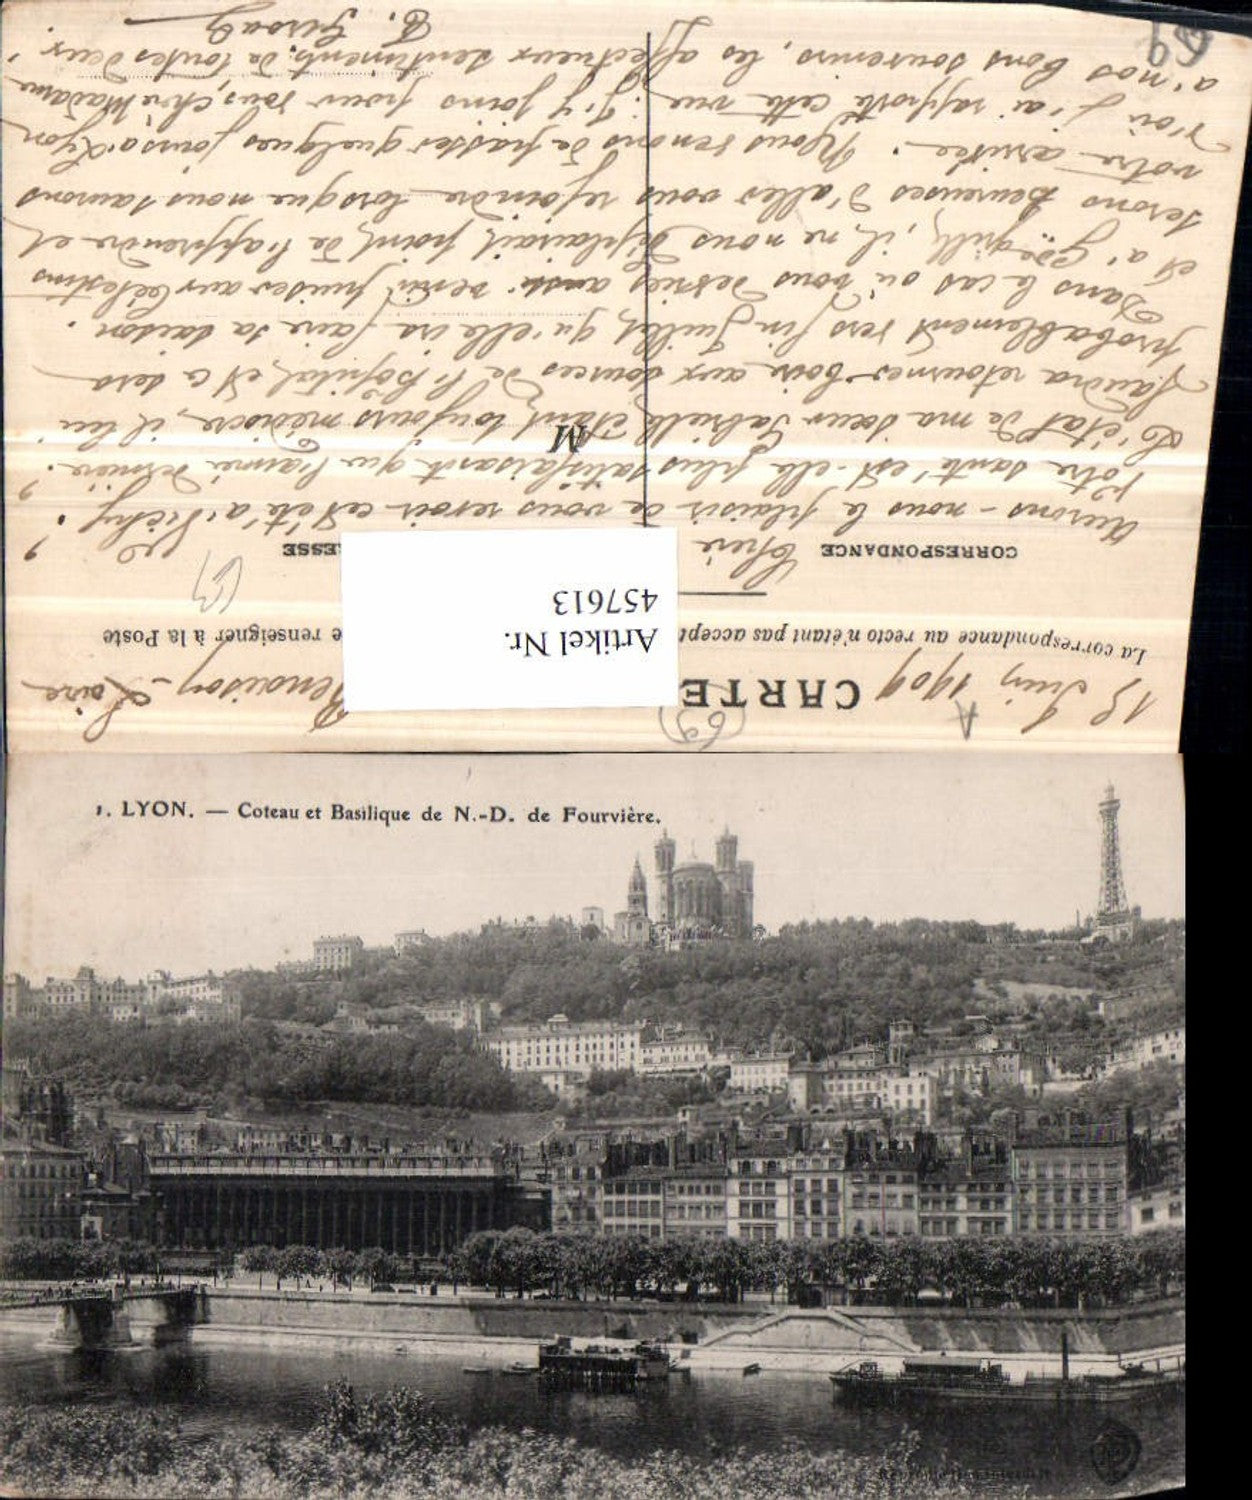 13 Juin 1909 Renaison - Loire
CARTE
La correspondance au recto n'étant pas accept
e renseigner à la Poste
Artikel Nr.
457613
CORRESPONDANCE
RESSE
M
69
69
69
A
Chère
Aurons-nous le plaisir de vous revoir cet été à Vichy ?
Votre santé est-elle plus satisfaisante que l'année dernière ?
L'état de ma soeur Gabrielle étant toujours médiocre, il lui
faudra retourner boire aux sources de l'hôpital, et ce sera
probablement vers fin Juillet, qu'elle ira faire sa saison.
Dans le cas où vous désiriez venir puiser aux Célestins
et à Gde grille, il ne nous déplairait point de l'apprendre et
serons heureuses d'aller vous rejoindre lorsque nous saurons
votre arrivée. Nous venons de passer quelques jours à Lyon
d'où j'ai rapporté cette vue. J'y joins pour vous, chère Madame
à nos bons souvenirs, les affectueux sentiments de toutes deux.
1. LYON. — Coteau et Basilique de N.-D. de Fourvière.